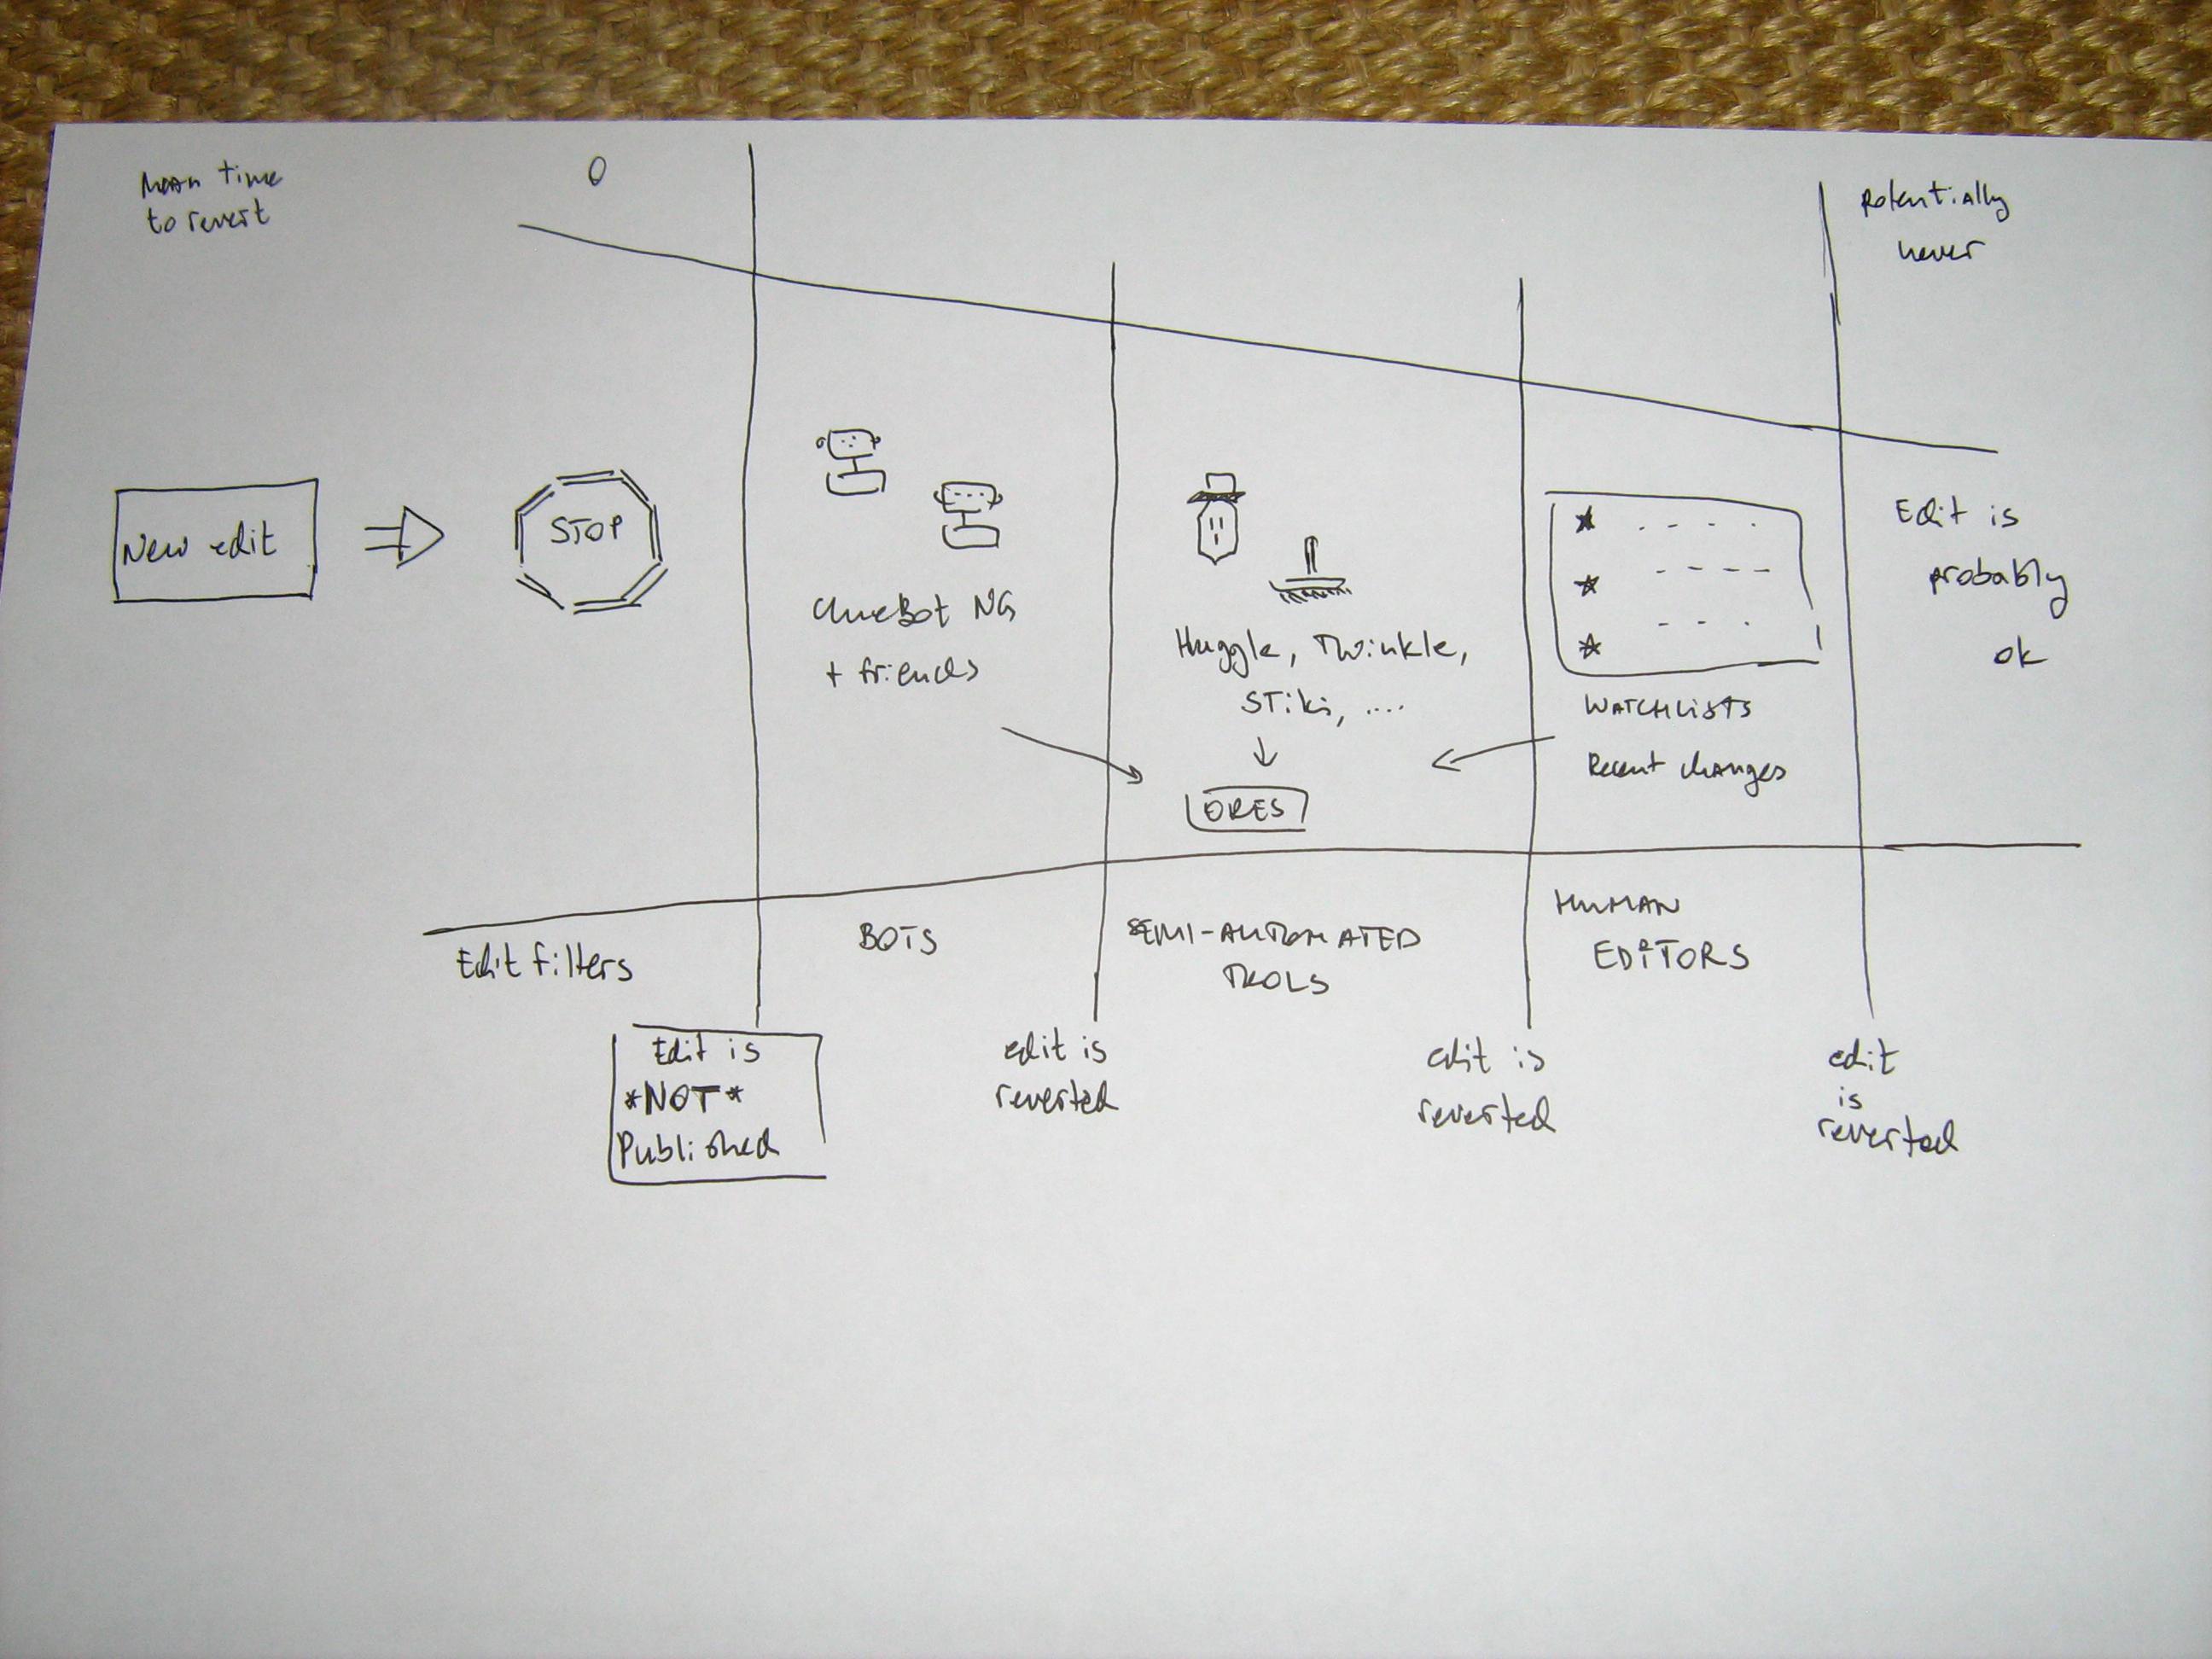 Mean time
to revert
0
Potentially
never
New edit
STOP
ClueBot NG
+ friends
Huggle, Twinkle,
STiki, ....
ORES
WATCHLISTS
Recent changes
Edit is
probably
ok
Edit filters
BOTS
SEMI-AUTOMATED
TOOLS
HUMAN
EDITORS
Edit is
*NOT*
Published
edit is
reverted
edit is
reverted
edit
is
reverted